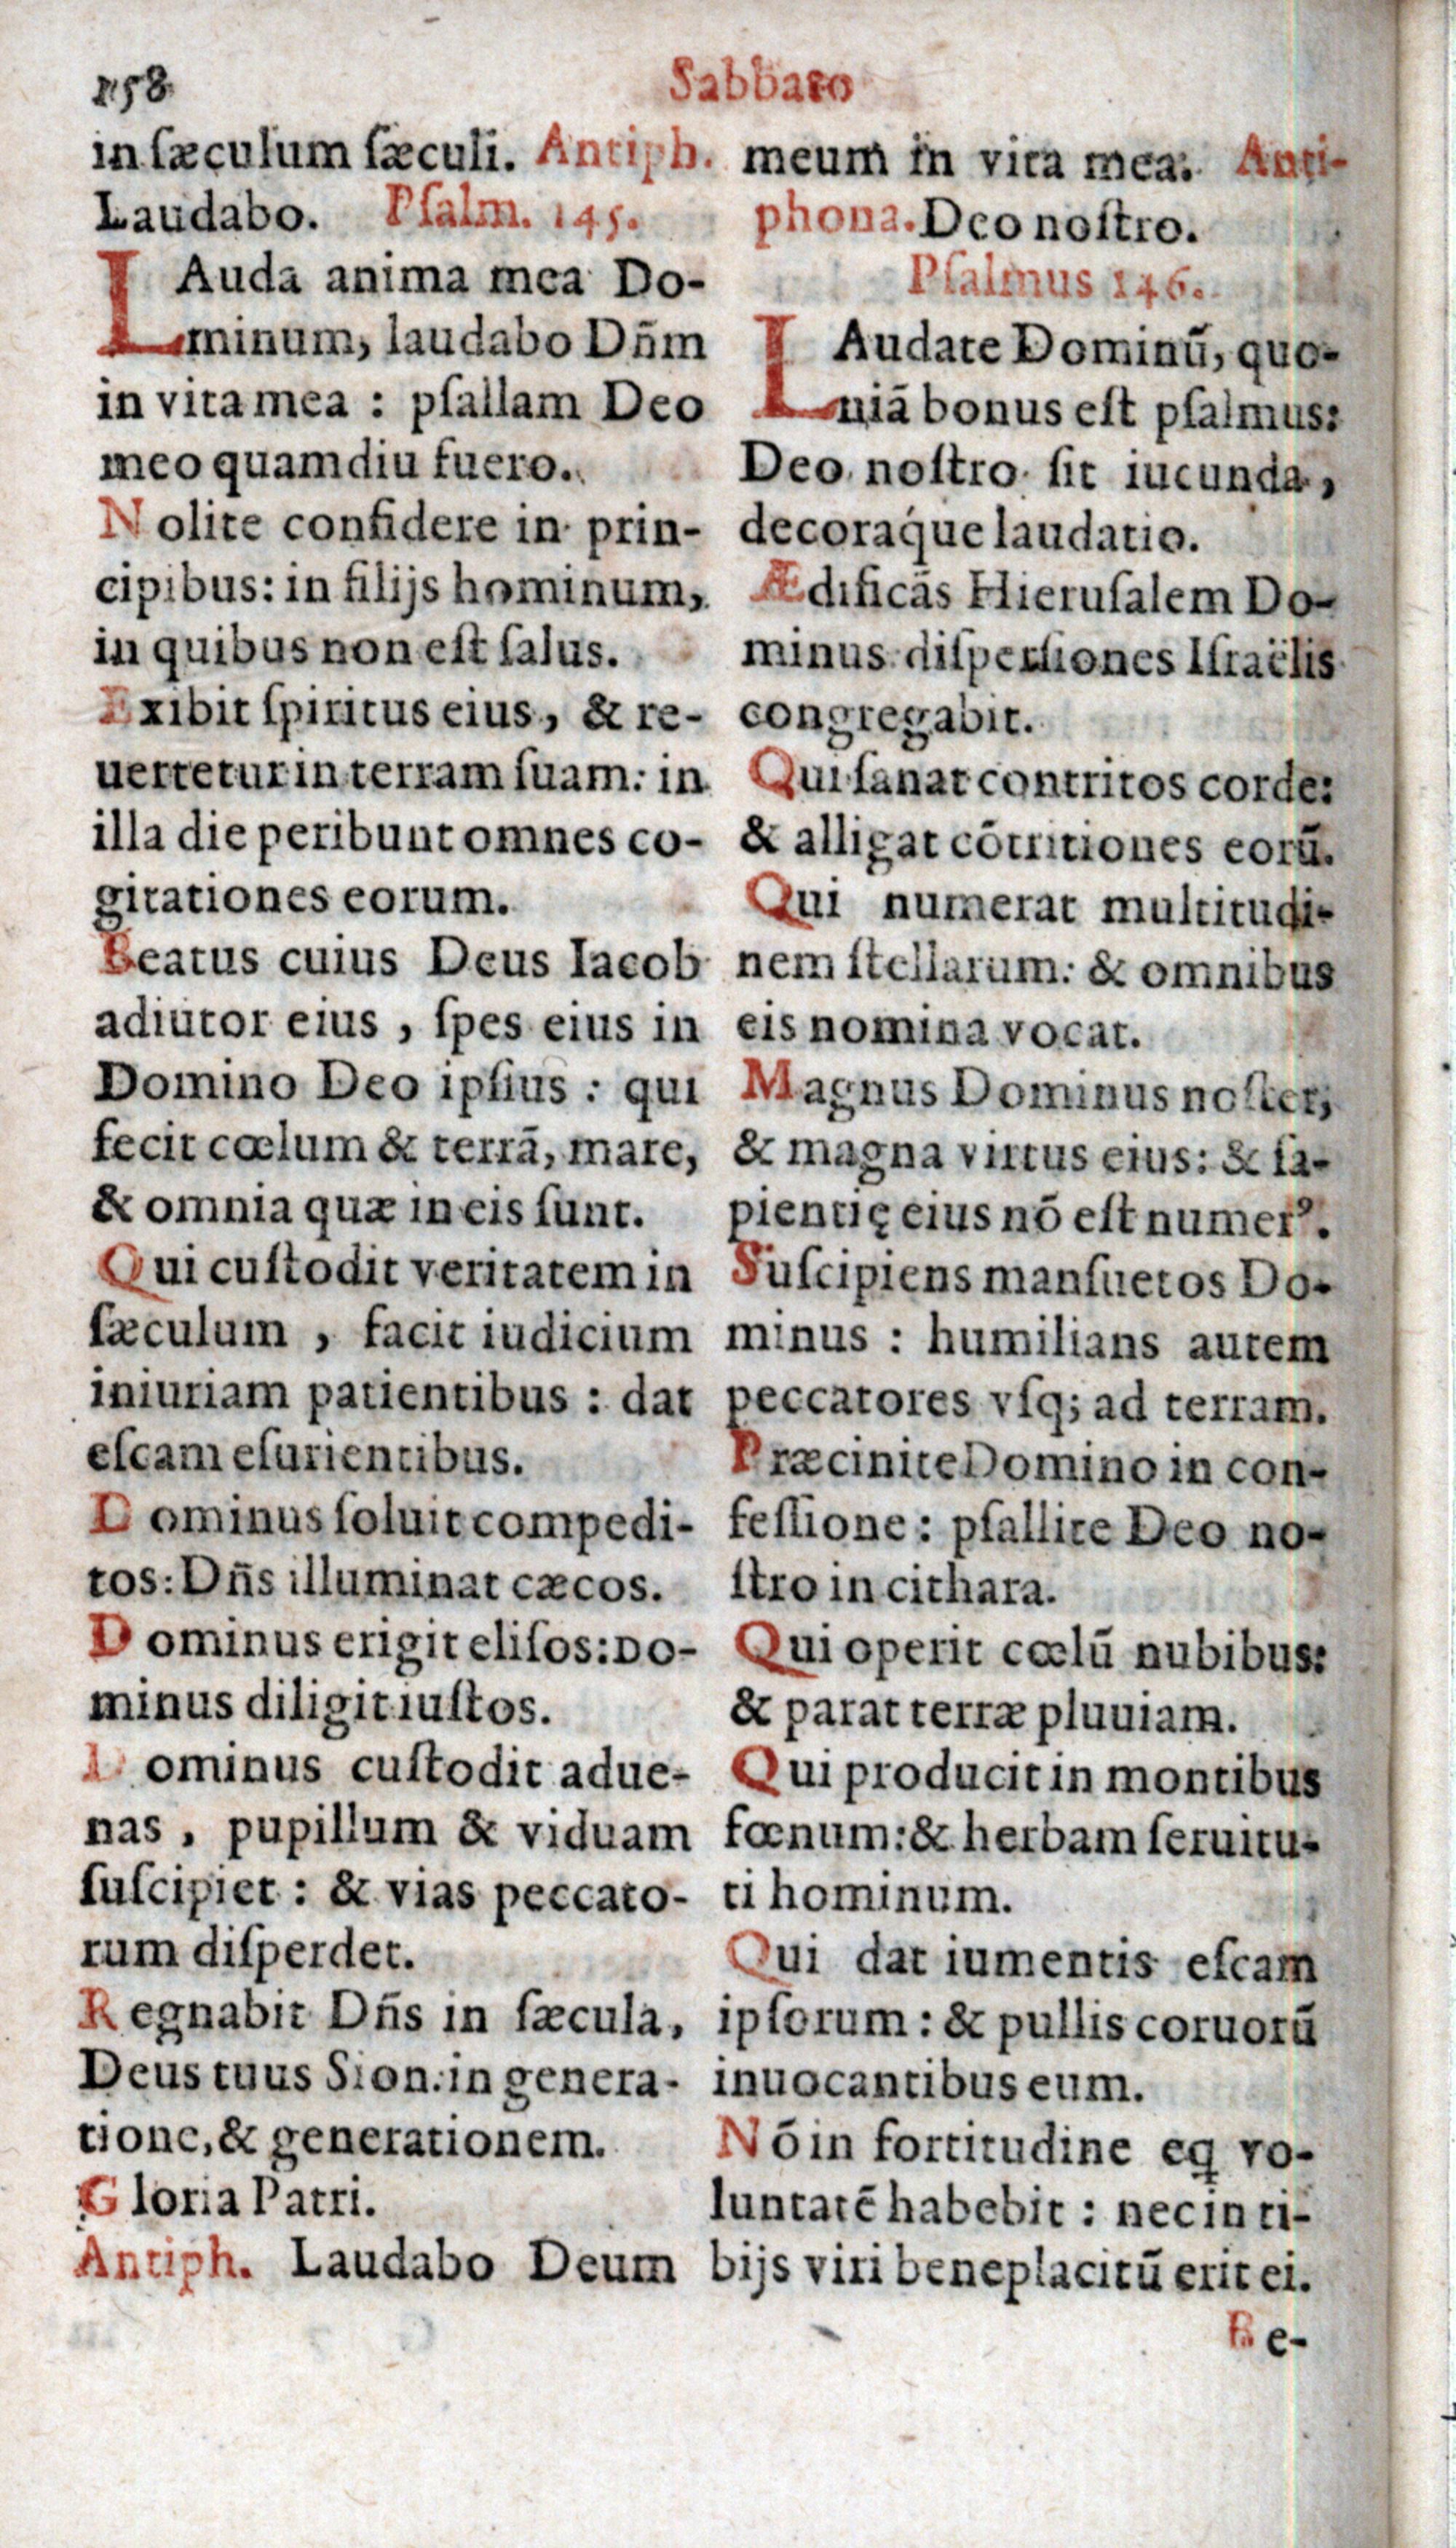 158
Sabbato
in ſæculum ſæculi. Antiph.
Laudabo. Pſalm. 145.
LAuda anima mea Do-
minum, laudabo Dñm
in vita mea : pſallam Deo
meo quamdiu fuero.
Nolite confidere in prin-
cipibus: in filijs hominum,
in quibus non eſt ſalus.
Exibit ſpiritus eius, & re-
uertetur in terram ſuam: in
illa die peribunt omnes co-
gitationes eorum.
Beatus cuius Deus Iacob
adiutor eius , ſpes eius in
Domino Deo ipſius : qui
fecit cœlum & terrã, mare,
& omnia quæ in eis ſunt.
Qui cuſtodit veritatem in
ſæculum , facit iudicium
iniuriam patientibus : dat
eſcam eſurientibus.
Dominus ſoluit compedi-
tos: Dñs illuminat cæcos.
Dominus erigit eliſos: Do-
minus diligit iuſtos.
Dominus cuſtodit adue-
nas , pupillum & viduam
ſuſcipiet : & vias peccato-
rum diſperdet.
Regnabit Dñs in ſæcula,
Deus tuus Sion: in genera-
tione, & generationem.
Gloria Patri.
Antiph. Laudabo Deum
meum in vita mea. Anti-
phona. Deo noſtro.
Pſalmus 146.
LAudate Dominũ, quo-
niã bonus eſt pſalmus:
Deo noſtro ſit iucunda ,
decoraq́ue laudatio.
Ædificãs Hieruſalem Do-
minus: diſperſiones Iſraëlis
congregabit.
Qui ſanat contritos corde:
& alligat cõtritiones eorũ.
Qui numerat multitudi-
nem ſtellarum: & omnibus
eis nomina vocat.
Magnus Dominus noſter,
& magna virtus eius: & ſa-
pientię eius nõ eſt numerꝰ.
Suſcipiens manſuetos Do-
minus : humilians autem
peccatores vſq; ad terram.
Præcinite Domino in con-
feſſione : pſallite Deo no-
ſtro in cithara.
Qui operit cœlũ nubibus:
& parat terræ pluuiam.
Qui producit in montibus
fœnum: & herbam ſeruitu-
ti hominum.
Qui dat iumentis eſcam
ipſorum : & pullis coruorũ
inuocantibus eum.
Nõ in fortitudine eq̨ vo-
luntatẽ habebit : nec in ti-
bijs viri beneplacitũ erit ei.
Be-